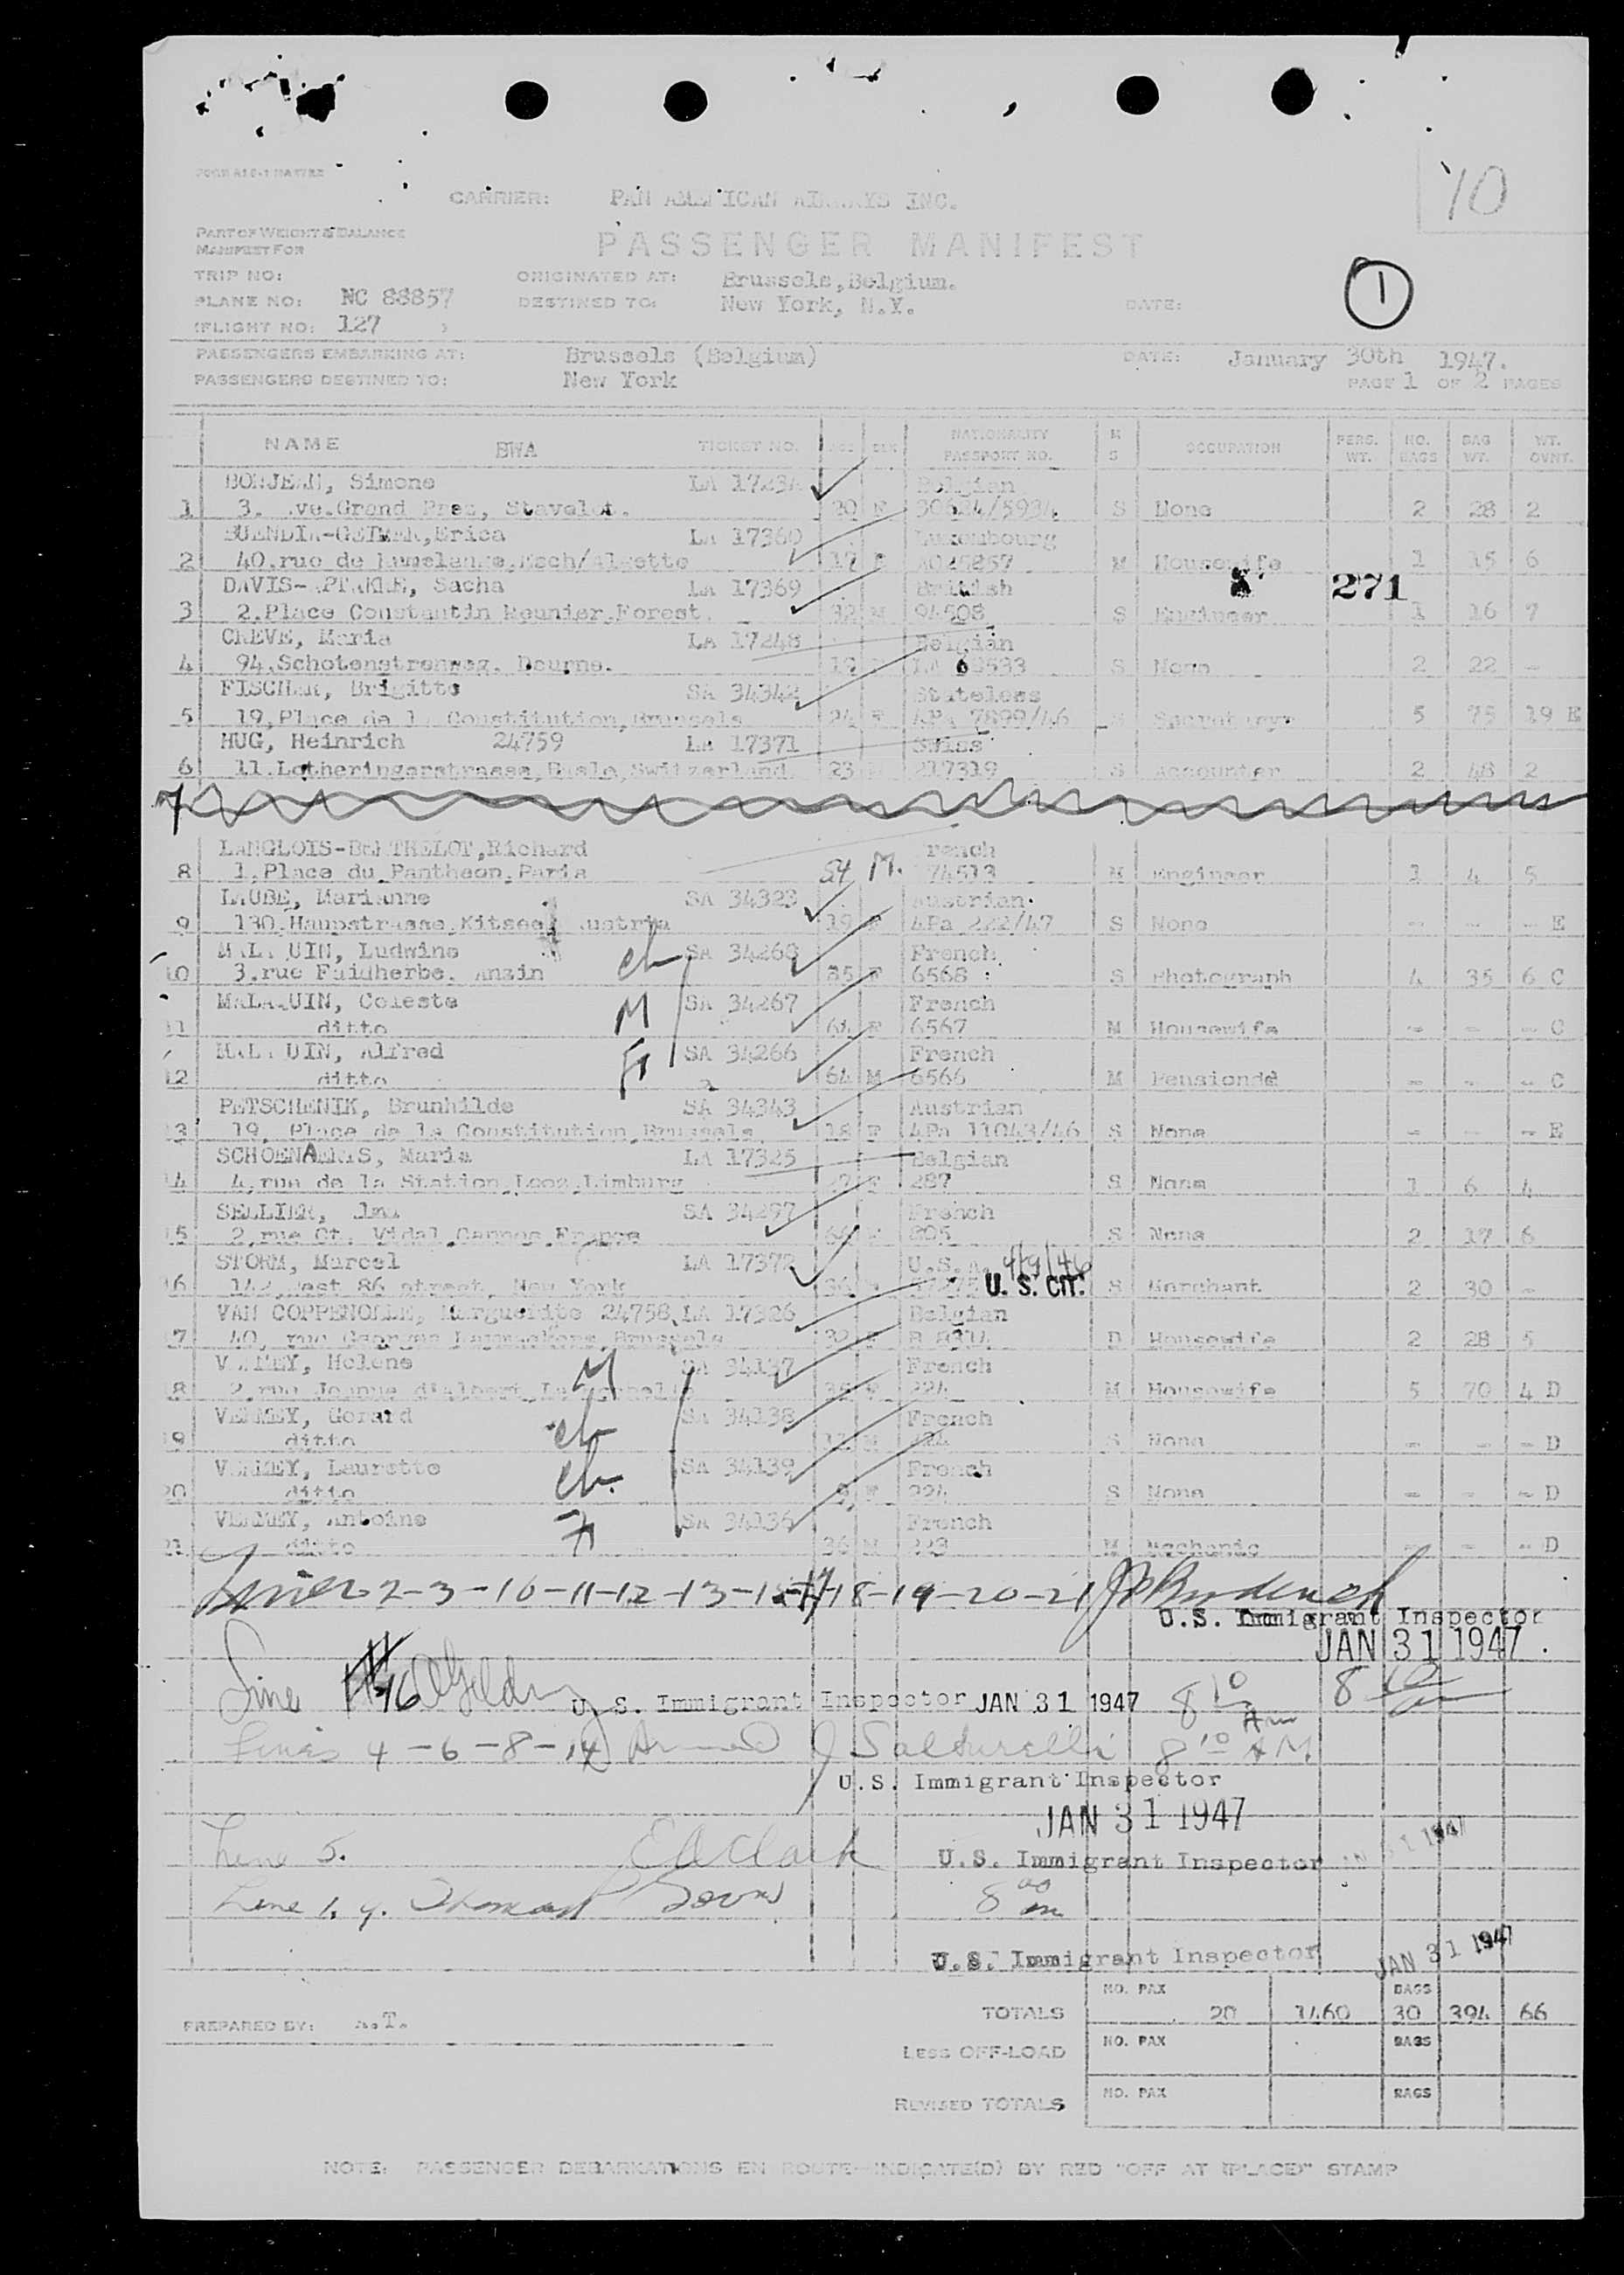 10
CARRIER: PAN AMERICAN AIRWAYS INC.
PART OF WEIGHT & BALANCE
MANIFEST FOR
PASSENGER MANIFEST
TRIP NO:
ORIGINATED AT: Brussels, Belgium.
PLANE NO: NC 88857
DESTINED TO: New York, N.Y.
DATE:
1
(FLIGHT NO: 127 )
PASSENGERS EMBARKING AT: Brussels (Belgium) DATE: January 30th 1947.
PASSENGERS DESTINED TO: New York PAGE 1 OF 2 PAGES
NAME BWA TICKET NO. AGE SEX NATIONALITY PASSPORT NO. M S OCCUPATION PERS. WT. NO. BAGS BAG WT. WT. OVNT.
BONJEAN, Simone LA 1723 Belgian
1 3. Ave.Grand Prez, Stavelot. 20 F 30624/5934 S None 2 28 2
Erica LA 17360 Luxembourg
2 40,rue de Esch/Alzette 17 F M Housewife 1 15 6
DAVIS- Sacha LA 17369 British
271
3 2,Place Constantin Meunier,Forest. 32 M 94508 S Engineer 1 16 7
CREVE, Maria LA 17248 Belgian
4 94,Schotensteenweg, Deurne. 19 S None 2 22 -
FISCHER, Brigitte SA 34342 Stateless
5 19,Place de la Constitution,Brussels 24 F APa 7899/46 5 75 19 E
HUG, Heinrich 24759 LA 17371 Swiss
6 11,Lotheringerstrasse,Basle,Switzerland. 23 217319 S Accounter 2 48 2
7
LANGLOIS-BERTHELOT,Richard French
8 1,Place du Pantheon,Paris 54 M. 74513 M Engineer 1 4 5
LAUBE, Marianne SA 34323 Austrian
9 130,Haupstrasse,Kitsee, Austria 19 F APa 222/47 S None - - - E
MALAQUIN, Ludwine ch SA 34268 French
10 3,rue Faidherbe, Anzin 35 F 6568 S Photograph 4 35 6 C
MALAQUIN, Celeste M SA 34267 French
11 ditto 64 F 6567 M Housewife - - - C
MALAQUIN, Alfred F SA 34266 French
12 ditto 64 M 6566 M Pensionde - - - C
PETSCHENIK, Brunhilde SA 34343 Austrian
13 19, Place de la Constitution,Brussels 18 F APa 11043/46 S None - - - E
SCHOENAERTS, Maria LA 17325 Belgian
14 4,rue de la Station,Looz,Limburg 27 F 287 S None 1 6 4
SELLIER, SA 34297 French
15 2,rue Ct. Vidal,Cannes,France 64 F 805 S None 2 17 6
STORM, Marcel LA 17372 U.S.A. 4/9/46
16 142,West 86 street, New York 36 U. S. CIT. S Merchant 2 30 -
VAN COPPENOLLE, Marguerite 24758 LA 17326 Belgian
17 40, rue Georges Brussels 32 F B 8314 D Housewife 2 28 5
VERMEY, Helene M SA 34137 French
18 2,rue Jeanne d'Albert, La Rochelle 35 F 224 M Housewife 5 70 4 D
VERMEY, Gerard ch SA 34138 French
19 ditto M 224 S None - - - D
VERMEY, Laurette ch. SA 34139 French
20 ditto F 224 S None - - - D
VERMEY, Antoine F SA 34136 French
21 ditto 36 M 223 M Mechanic - - - D
Lines 2-3-10-11-12-13-15-17-18-19-20-21
U.S. Immigrant Inspector
JAN 31 1947
Line 16 U. S. Immigrant Inspector JAN 31 1947 8 10 Am 8 10
Lines 4-6-8-14 J Salturelli 8 10 AM
U.S. Immigrant Inspector
JAN 31 1947
Line 5. E A Clark U.S. Immigrant Inspector JAN 31 1947
Line 1, 9. Thomas 8 00 am
U.S. Immigrant Inspector JAN 31 1947
NO. PAX BAGS
TOTALS 20 1460 30 394 66
PREPARED BY: A.T.
NO. PAX BAGS
LESS OFF-LOAD
NO. PAX BAGS
REVISED TOTALS
NOTE: PASSENGER DEBARKATIONS EN ROUTE INDICATE(D) BY RED "OFF AT (PLACE)" STAMP